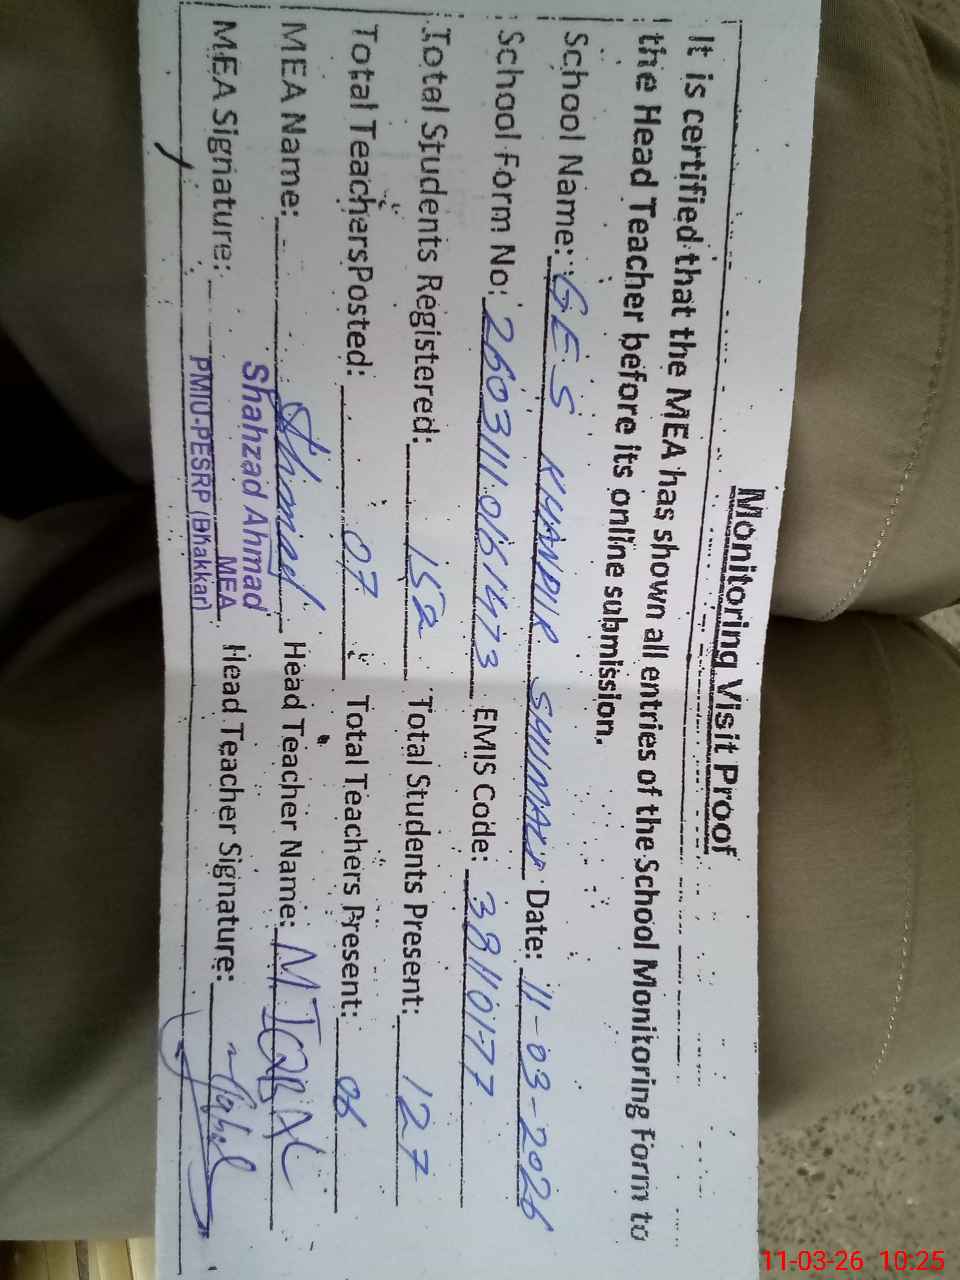 Monitoring Visit Proof
It is certified that the MEA has shown all entries of the School Monitoring Form to
the Head Teacher before its online submission.
School Name: GES KHANPUR SHUMALI Date: 11-03-2026
School Form No: 2603111061473 EMIS Code: 38110177
Total Students Registered: 152 Total Students Present: 127
Total TeachersPosted: 07 Total Teachers Present: 06
MEA Name: Ahmad Head Teacher Name: M IQBAL
MEA Signature: Head Teacher Signature: Iqbal
Shahzad Ahmad
MEA
PMIU-PESRP (Bhakkar)
11-03-26 10:25